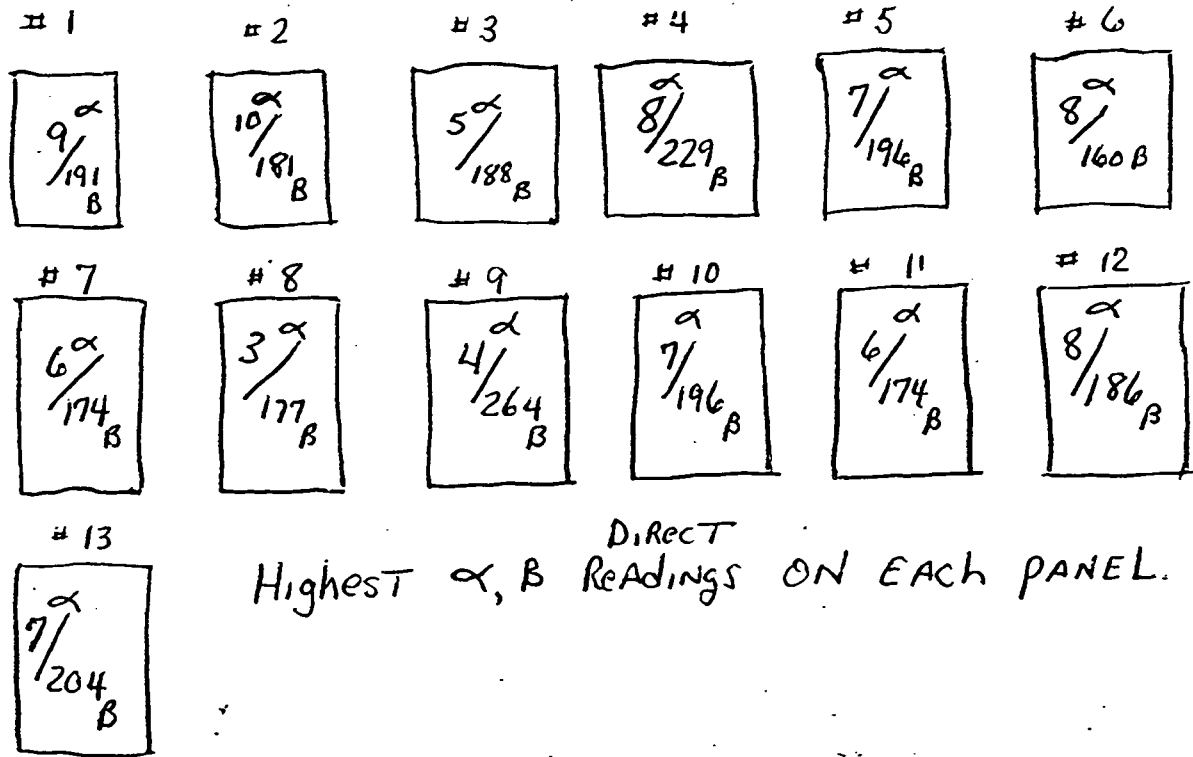 # 1 # 2 # 3 # 4 # 5 # 6
9 α / 191 β
10 α / 181 β
5 α / 188 β
8 α / 229 β
7 α / 196 β
8 α / 160 β
# 7 # 8 # 9 # 10 # 11 # 12
6 α / 174 β
3 α / 177 β
4 α / 264 β
7 α / 196 β
6 α / 174 β
8 α / 186 β
# 13
7 α / 204 β
DIRECT
HIGHEST α, β READINGS ON EACH PANEL.